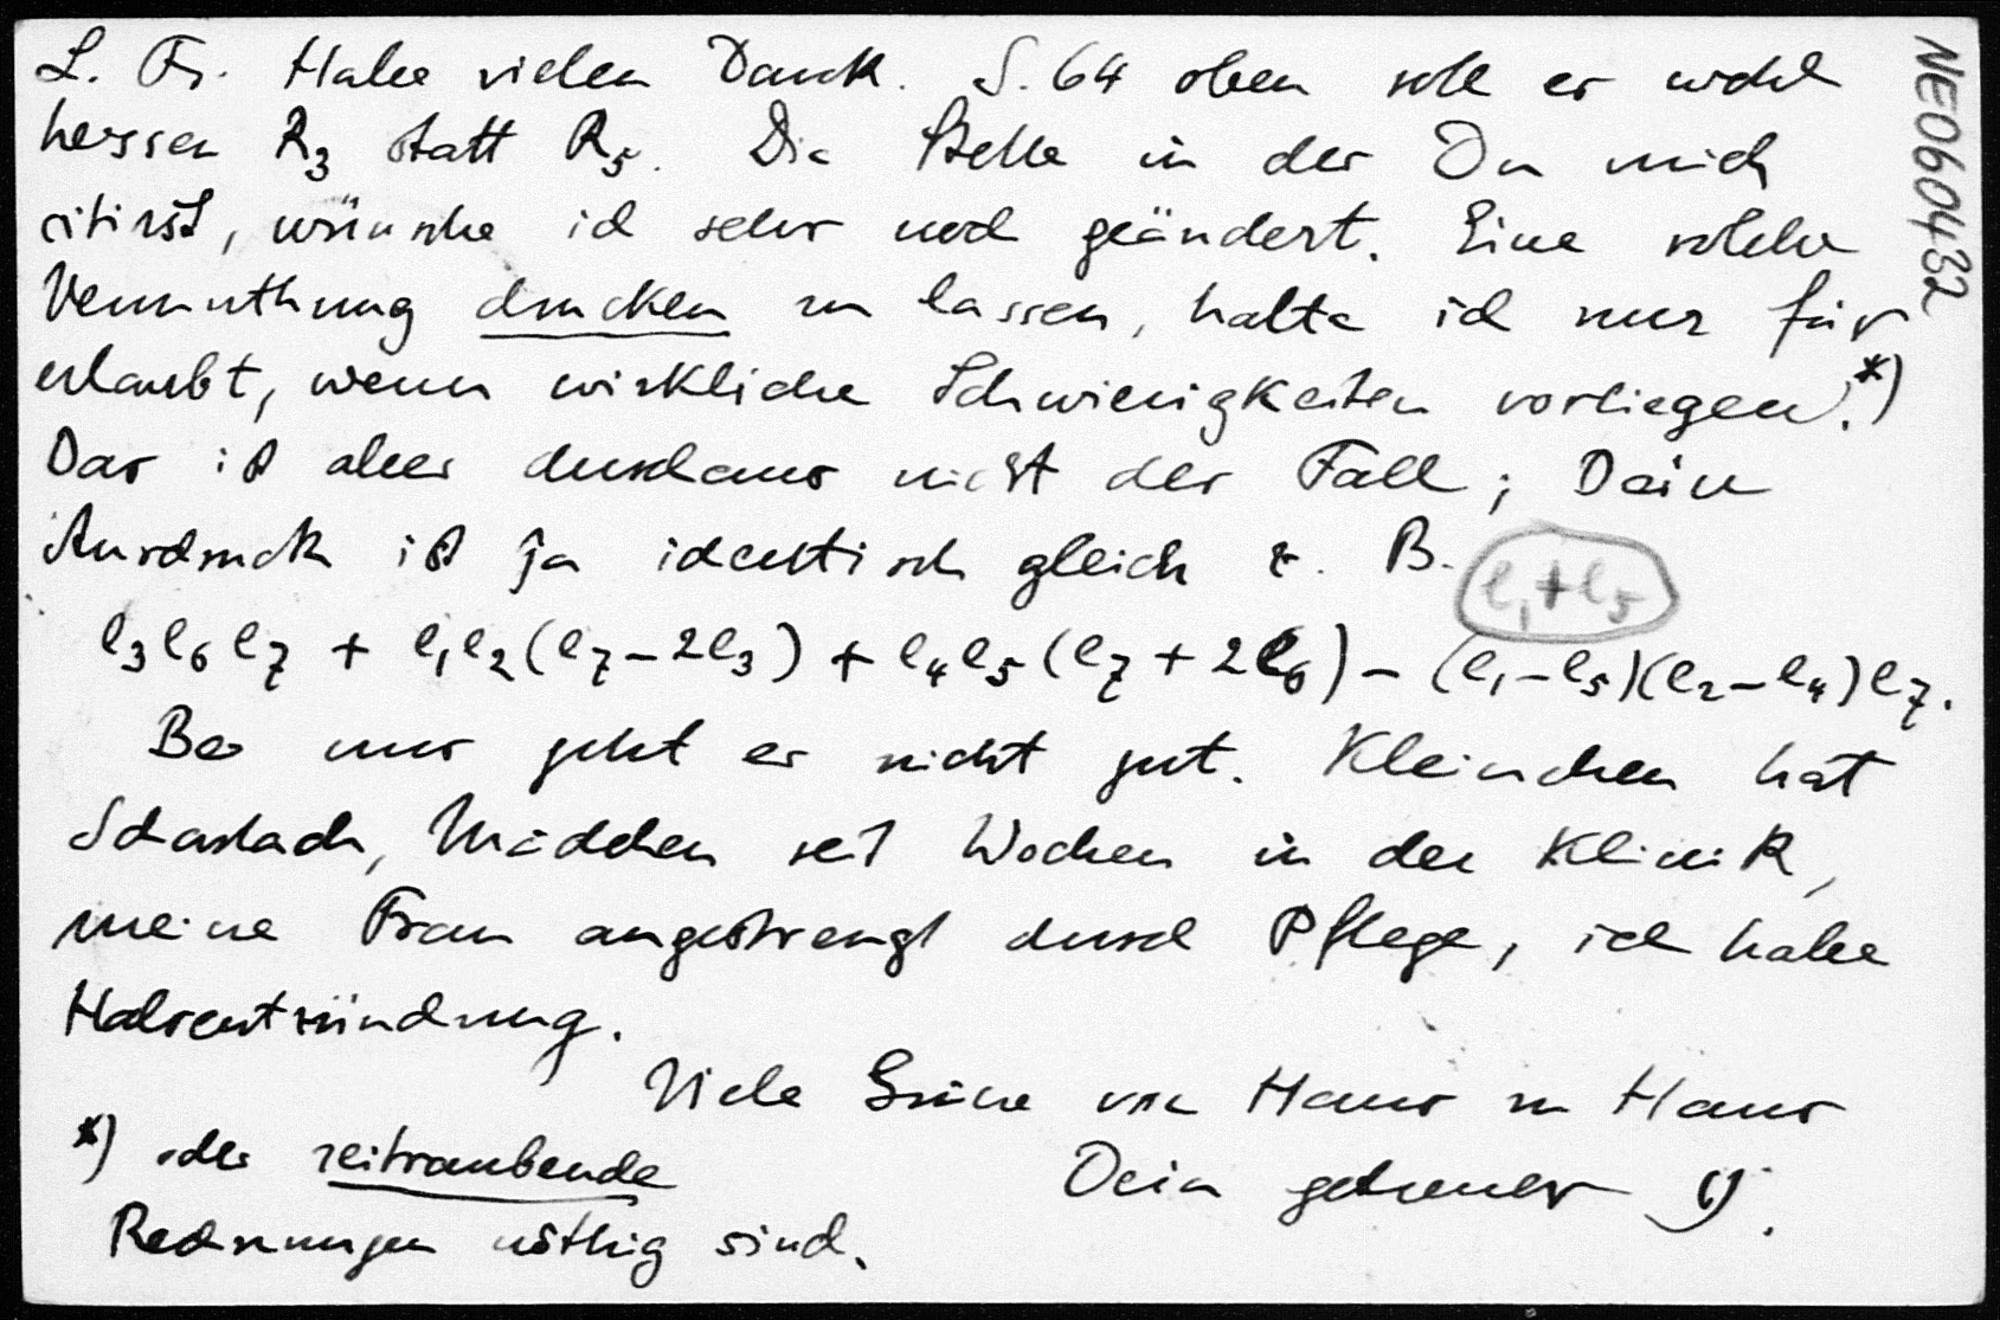 L. Fr. Habe vielen Dank. S. 64 oben soll es wohl
heissen R₃ statt R₅. Die Stelle in der Du mich
citirst, wünsche ich sehr noch geändert. Eine solche
Vermuthung drucken zu lassen, halte ich nur für
erlaubt, wenn wirkliche Schwierigkeiten vorliegen.*)
Das ist aber durchaus nicht der Fall; Dein
Ausdruck ist ja identisch gleich z. B.
e₁+e₅
e₃e₆e₇ + e₁e₂(e₇-2e₃) + e₄e₅(e₇+2e₆) - (e₁-e₅)(e₂-e₄)e₇.
Bei uns geht es nicht gut. Kleinchen hat
Scharlach, Mädchen seit Wochen in der Klinik,
meine Frau angestrengt durch Pflege, ich habe
Halsentzündung.
Viele Grüsse von Haus zu Haus
Dein getreuer
*) oder zeitraubende
Rechnungen nöthig sind.
NE060432